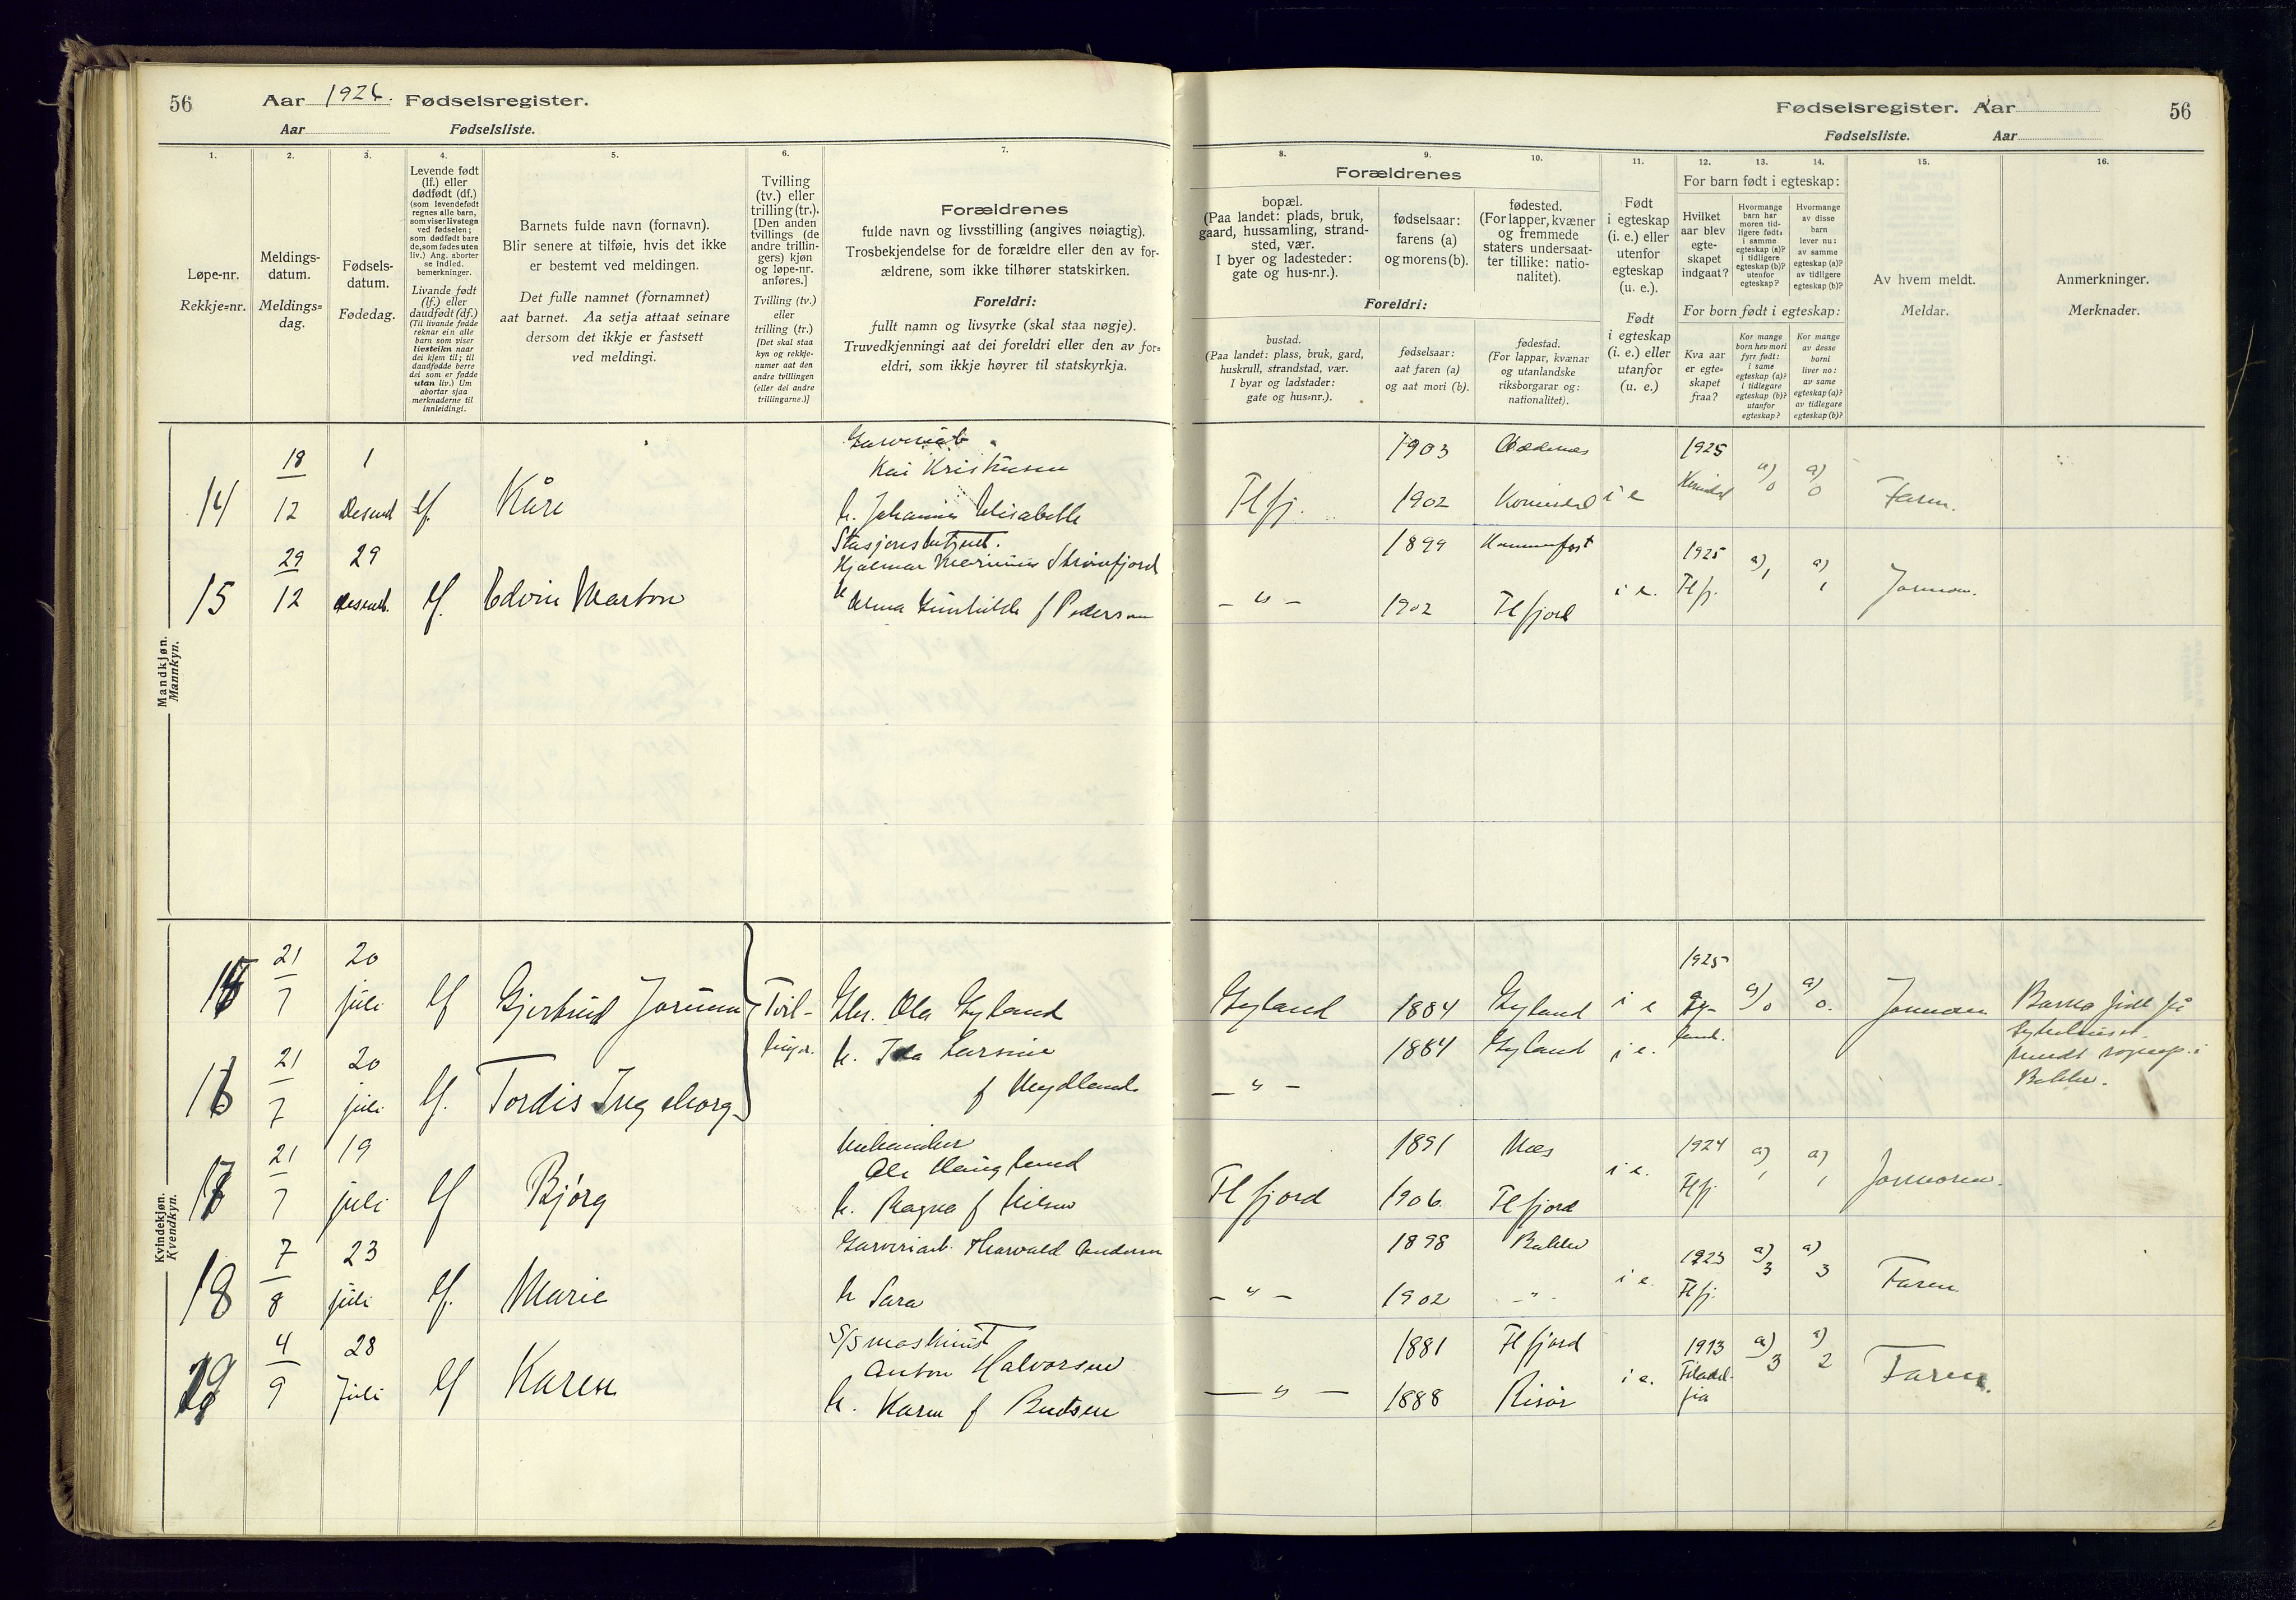 56
Aar 1926. Fødselsregister.
Aar Fødselsliste.
1.
2.
3.
4.
5.
6.
7.
Løpe-nr.
Rekkje=nr.
Meldings-
datum.
Meldings=
dag.
Fødsels-
datum.
Fødedag.
Levende født
(lf.) eller
dødfødt (df.)
(som levendefødt
regnes alle barn,
som viser livstegn
ved fødselen;
som dødfødt bare
de, som fødes uten
liv.) Ang. aborter
se indled.
bemerkninger.
Livande født
(lf.) eller
daudfødt (df.)
(Til livande fødde
reknar ein alle
barn som viser
livsteikn naar
dei kjem til; til
daudfødde berre
dei som er fødde
utan liv.) Um
abortar sjaa
merknaderne til
innleidingi.
Barnets fulde navn (fornavn).
Blir senere at tilføie, hvis det ikke
er bestemt ved meldingen.
Det fulle namnet (fornamnet)
aat barnet. Aa setja attaat seinare
dersom det ikkje er fastsett
ved meldingi.
Tvilling
(tv.) eller
trilling (tr.).
[Den anden
tvillings (de
andre trillin-
gers) kjøn
og løpe-nr.
anføres.]
Tvilling (tv.)
eller
trilling (tr.)
[Det skal staa
kyn og rekkje-
numer aat den
andre tvillingen
(eller dei andre
trillingarne.)]
Forældrenes
fulde navn og livsstilling (angives nøiagtig).
Trosbekjendelse for de forældre eller den av for-
ældrene, som ikke tilhører statskirken.
Foreldri:
fullt namn og livsyrke (skal staa nøgje).
Truvedkjenningi aat dei foreldri eller den av for=
eldri, som ikkje høyrer til statskyrkja.
Mandkjøn.
Mannkyn.
14
18
12
1
Desemb
lf.
Kåre
Garveriarb.
Kai Kristensen
h. Johanne Elisabeth
15
29
12
29
Desemb.
lf.
Edvin Marton
Stasjonsbetjent.
Hjalmar Marinius Strømfjord
h. Alma Gunhilde f Pedersen
Kvindekjøn.
Kvendkyn.
15
21
7
20
juli
lf
Gjertrud Jorunn
Tvil-
linger.
Gbr. Ola Gyland
16
21
7
20
juli
lf.
Tordis Ingeborg
h. Ida Larsine
f
17
21
7
19
juli
lf
Bjørg
Ole Haugland
h. Magna f Nilsen
18
7
8
23
juli
lf.
Marie
Garveriarb. Thorvald Andersen
h Sara
19
4
9
28
Juli
lf
Karen
S/S maskinist
Anton Halvorsen
h. Karen f Bentsen
Fødselsregister. Aar
56
Fødselsliste. Aar
8.
9.
10.
11.
12.
13.
14.
15.
16.
Forældrenes
bopæl.
(Paa landet: plads, bruk,
gaard, hussamling, strand-
sted, vær.
I byer og ladesteder:
gate og hus-nr.).
fødselsaar:
farens (a)
og morens (b).
fødested.
(For lapper, kvæner
og fremmede
staters undersaat-
ter tillike: natio-
nalitet).
Foreldri:
bustad.
(Paa landet: plass, bruk, gard,
huskrull, strandstad, vær.
I byar og ladstader:
gate og hus=nr.).
fødselsaar:
aat faren (a)
og aat mori (b).
fødestad.
(For lappar, kvænar
og utanlandske
riksborgarar og:
nationalitet).
Født
i egteskap
(i. e.) eller
utenfor
egteskap
(u. e.).
Født
i egteskap
(i. e.) eller
utanfor
(u. e.)
For barn født i egteskap:
Hvilket
aar blev
egte-
skapet
indgaat?
Hvormange
barn har
moren tid-
ligere født:
i samme
egteskap (a)?
i tidligere
egteskap (b)?
utenfor
egteskap?
Hvormange
av disse
barn
lever nu:
av samme
egteskap (a)?
av tidligere
egteskap (b)?
For born født i egteskap:
Kva aar
er egte=
skapet
fraa?
Kor mange
born hev mori
fyrr født:
i same
egteskap (a)?
i tidlegare
egteskap (b)?
utanfor
egteskap?
Kor mange
av desse
borni
liver no:
av same
egteskap (a)?
av tidlegare
egteskap (b)?
Av hvem meldt.
Meldar.
Anmerkninger.
Merknader.
Flfj.
1903
1902
Kvinesdal
i e
1925
a)
0
a)
0
Faren.
— " —
1899
1902
Hammerfest
Flfjord
i e.
1925
Flfj.
a)
1
a)
1
Jormoren.
Gyland
1884
Gyland
i e
1925
Gy-
land.
a)
0
a)
0.
Jormoren
Barna født på
Sykehuset
i
Bakke.
— " —
1884
Gyland
i e.
Flfjord
1891
1906
Næs
Flfjord
i e.
1924
Flfj.
a)
1
a)
1
Jormoren.
— " —
1898
1902
Bakke
— " —
i e.
1923
Flfj.
a)
3
a)
3
Faren
— " —
1881
1888
Flfjord
Risør
i e.
1913
Filadel-
fia
a)
3
a)
2
Faren.